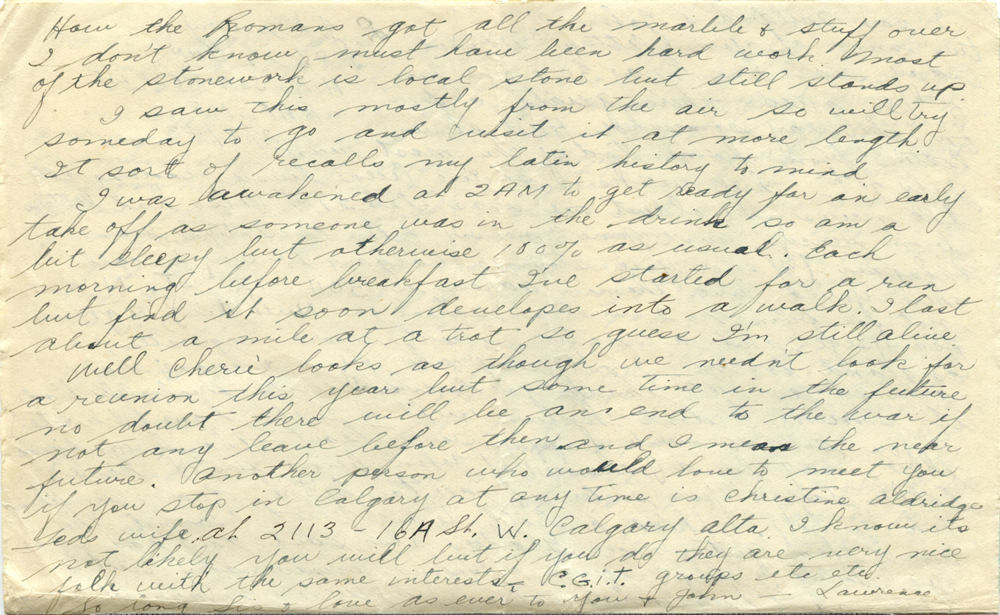 How the Romans got all the marble & stuff over
I don't know must have been hard work. Most
of the stonework is local stone but still stands up.
I saw this mostly from the air so will try
someday to go and visit it at more length.
It sort of recalls my latin history to mind
I was awakened at 2AM to get ready for an early
take off as someone was in the drink so am a
bit sleepy but otherwise 100% as usual. Each
morning before breakfast I've started for a run
but find it soon developes into a walk. I last
about a mile at a trot so guess I'm still alive.
Well Cherie looks as though we needn't look for
a reunion this year but some time in the future
no doubt there will be an end to the war if
not any leave before then and I mean the near
future. Another person who would love to meet you
if you stop in Calgary at any time is Christine Aldridge
Teds wife, at 2113 - 16A St. W. Calgary Alta. I know its
not likely you will but if you do they are very nice
folk with the same interests - C.G.I.T. groups etc etc.
So long Sis & love as ever to you & John - Lawrence